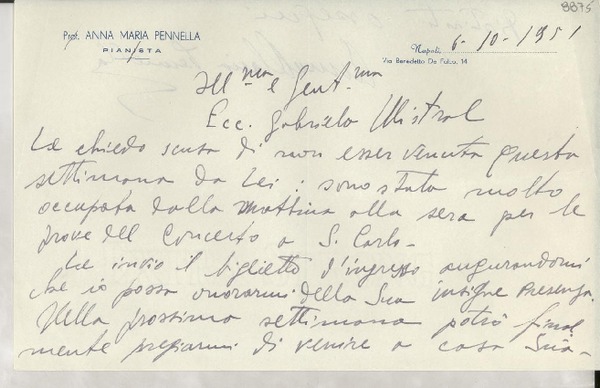 8875
Prof. ANNA MARIA PENNELLA
PIANISTA
Napoli, 6-10-1951
Via Benedetto De Falco, 14
Ill.ma e Gent.ma
Ecc. Gabriela Mistral
Le chiedo scusa di non esser venuta questa
settimana da Lei: sono stata molto
occupata dalla mattina alla sera per le
prove del Concerto a S. Carlo-
Le invio il biglietto d'ingresso augurandomi
che io possa onorarmi della Sua insigne Presenza.
Nella prossima settimana potrò final
mente pregiarmi di venire a casa Sua-